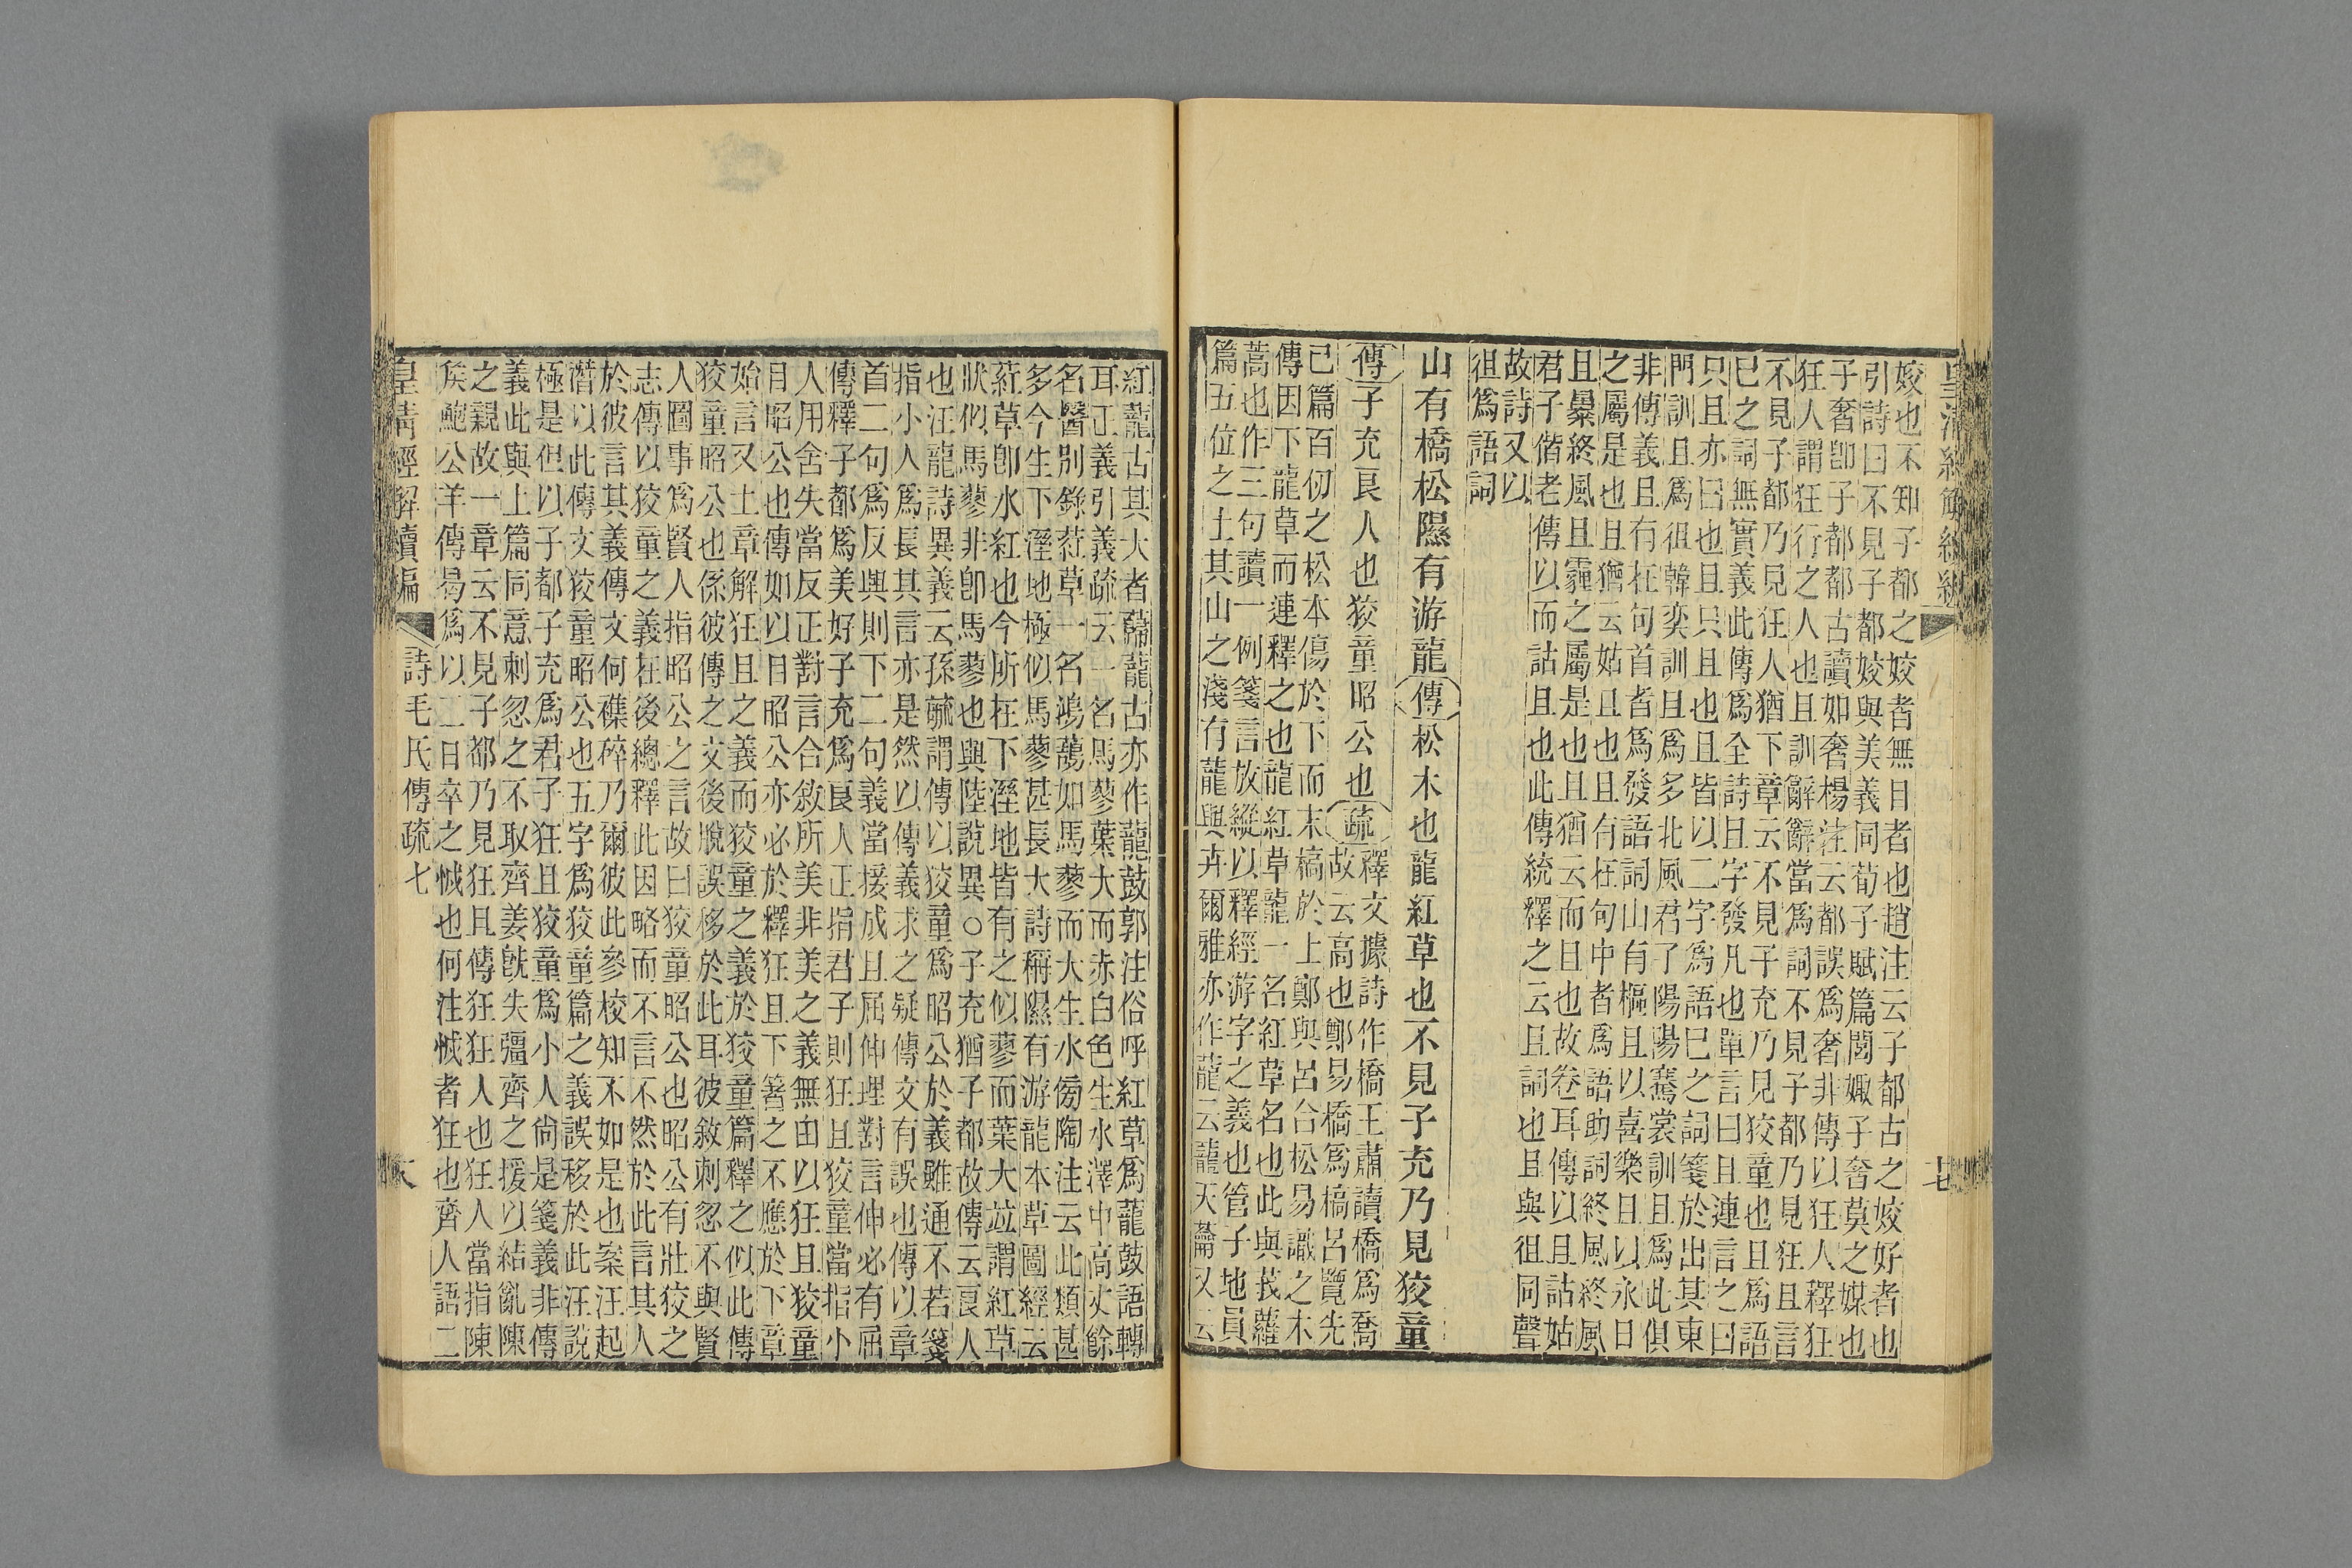 姣也不知子都之姣者無目者也趙注云子都古之姣好者也
引詩曰不見子都姣與美義同荀子賦篇閭娵子奢莫之媒也
子奢卽子都都古讀如奢楊注云都誤爲奢非傳以狂人釋狂
狂人謂狂行之人也且訓辭辭當爲詞不見子都乃見狂且言
不見子都乃見狂人猶下章云不見子充乃見狡童也且爲語
巳之詞無實義此傳爲全詩且字發凡也單言曰且連言之曰
只且亦曰也且只且也且皆以二字爲語巳之詞箋於出其東
門訓且爲徂韓奕訓且爲多北風君子陽陽騫裳訓且爲此俱
非傳義且有在句首者爲發語詞山有樞且以喜樂且以永日
之屬是也且猶云姑且也且有在句中者爲語助詞終風終風
且曓終風且霾之屬是也且猶云而且也故卷耳傳以且詁姑
君子偕老傳以而詁且也此傳統釋之云且詞也且與徂同聲
故詩又以
徂爲語詞
山有橋松隰有游龍傳松木也龍紅草也不見子充乃見狡童
傳子充良人也狡童昭公也疏釋文據詩作橋王肅讀橋爲喬
故云高也鄭易橋爲槁呂覽先
己篇百仞之松本傷於下而末槁於上鄭與呂合松易識之木
傳因下龍草而連釋之也龍紅草龍一名紅草名也此與莪蘿
蒿也作三句讀一例箋言放縱以釋經游字之義也管子地員
篇五位之土其山之淺有蘢與斥爾雅亦作蘢云蘢天蘥又云
紅蘢古其大者蘬蘢古亦作蘢鼓郭注俗呼紅草爲蘢鼓語轉
耳正義引義疏云一名馬蓼葉大而赤白色生水澤中高丈餘
名醫別錄葒草一名鴻䕞如馬蓼而大生水傍陶注云此類甚
多今生下溼地極似馬蓼甚長大詩稱隰有游龍本草圖經云
葒草卽水紅也今所在下溼地皆有之似蓼而葉大竝謂紅草
狀似馬蓼非卽馬蓼也與陸說異○子充猶子都故傳云良人
也汪龍詩異義云孫毓謂傳以狡童爲昭公於義雖通不若箋
指小人爲長其言亦是然以傳義求之疑傳文有誤也傳以章
首二句爲反興則下二句義當接成且屈伸理對言伸必有屈
傳釋子都爲美好子充爲良人正指君子則狂且狡童當指小
人用舍失當反正對言合敘所美非美之義無由以狂且狡童
目昭公也傳如以目昭公亦必於釋狂且下箸之不應於下章
始言又士章解狂且之義而狡童之義於狡童篇釋之似此傳
狡童昭公也係彼傳之文後脫誤移於此耳彼敘刺忽不與賢
人圖事爲賢人指昭公之言故曰狡童昭公也昭公有壯狡之
志傳以狡童之義在後總釋此因略而不言不然於此言其人
於彼言其義傳文何磼碎乃爾彼此參校知不如是也案汪起
潛以此傳文狡童昭公也五字爲狡童篇之義誤移於此汪說
極是但以子都子充爲君子狂且狡童爲小人尙是箋義非傳
義此與上篇同意刺忽之不取齊姜旣失彊齊之援以結亂陳
之親故一章云不見子都乃見狂且傳狂狂人也狂人當指陳
矦鮑公羊傳曷爲以二日卒之怴也何注怴者狂也齊人語二
皇清經解續編 詩毛氏傳疏七